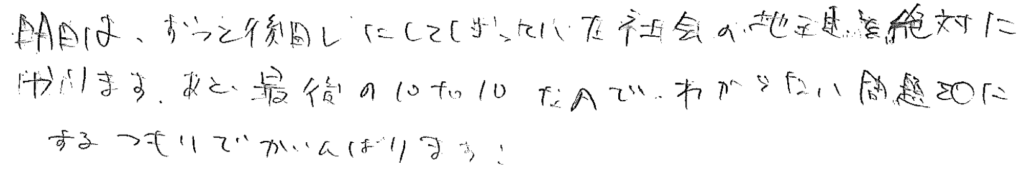 明日は、ずっと後回しにしてしまっていた社会の地理を絶対に
やります。あと、最後の10to10なので、わからない問題を0に
するつもりでがんばります!